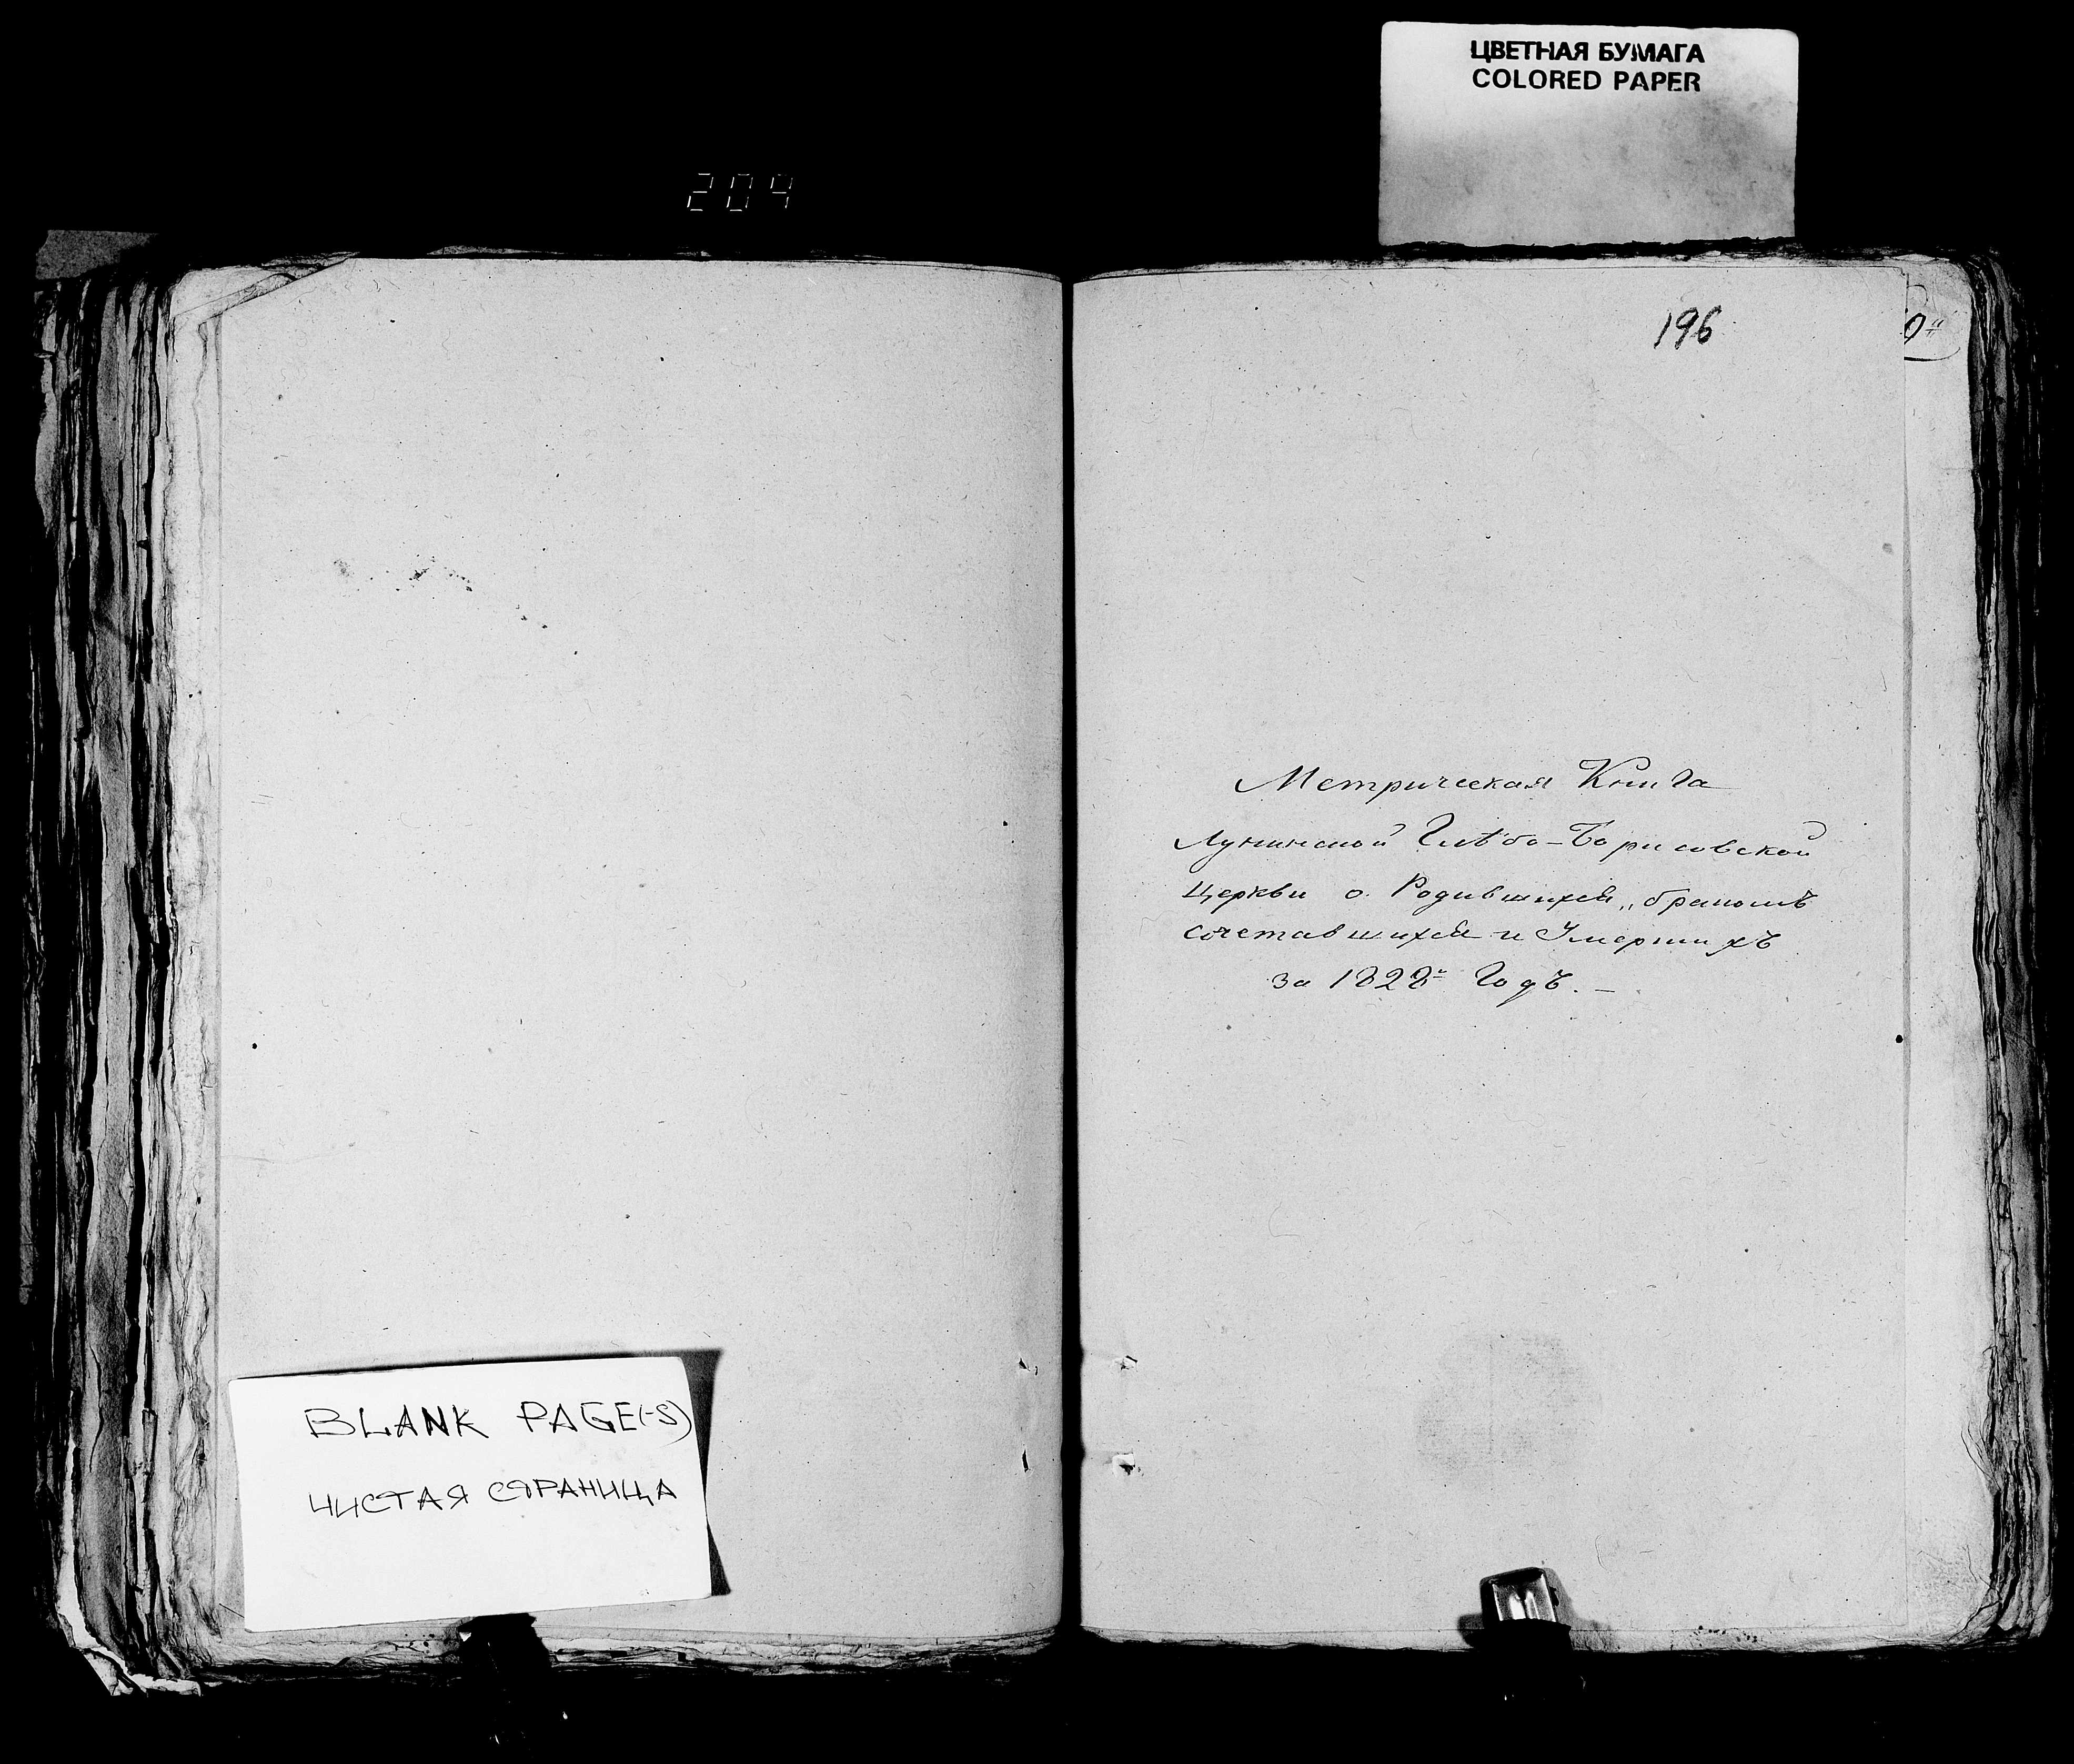 ЦВЕТНАЯ БУМАГА
COLORED PAPER
204
196
Метрическая Книга
Лунинской Глѣбо-Борисовской
Церкви о Родившихся, бракомъ
сочетавшихся и Умершихъ
за 1828й Годъ. –
BLANK PAGE(-S)
ЧИСТАЯ СТРАНИЦА